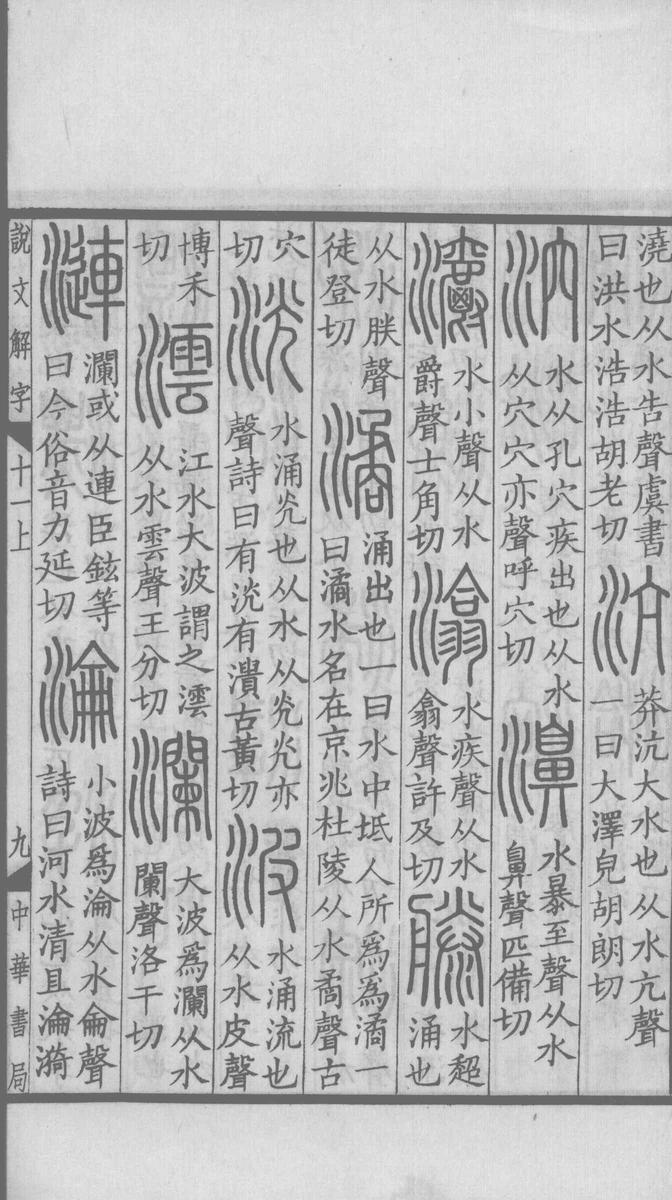 澆也从水告聲虞書
曰洪水浩浩胡老切
沆
莽沆大水也从水亢聲
一曰大澤皃胡朗切
泬
水从孔穴疾出也从水
从穴穴亦聲呼穴切
濞
水暴至聲从水
鼻聲匹備切
灂
水小聲从水
爵聲士角切
潝
水疾聲从水
翕聲許及切
滕
水超
涌也
从水朕聲
徒登切
潏
涌出也一曰水中坻人所爲爲潏一
曰潏水名在京兆杜陵从水矞聲古
穴
切
洸
水涌光也从水从炗炗亦
聲詩曰有洸有潰古黃切
波
水涌流也
从水皮聲
博禾
切
澐
江水大波謂之澐
从水雲聲王分切
瀾
大波爲瀾从水
闌聲洛干切
漣
瀾或从連臣鉉等
曰今俗音力延切
淪
小波爲淪从水侖聲
詩曰河水清且淪漪
說文解字
十一上
九
中華書局